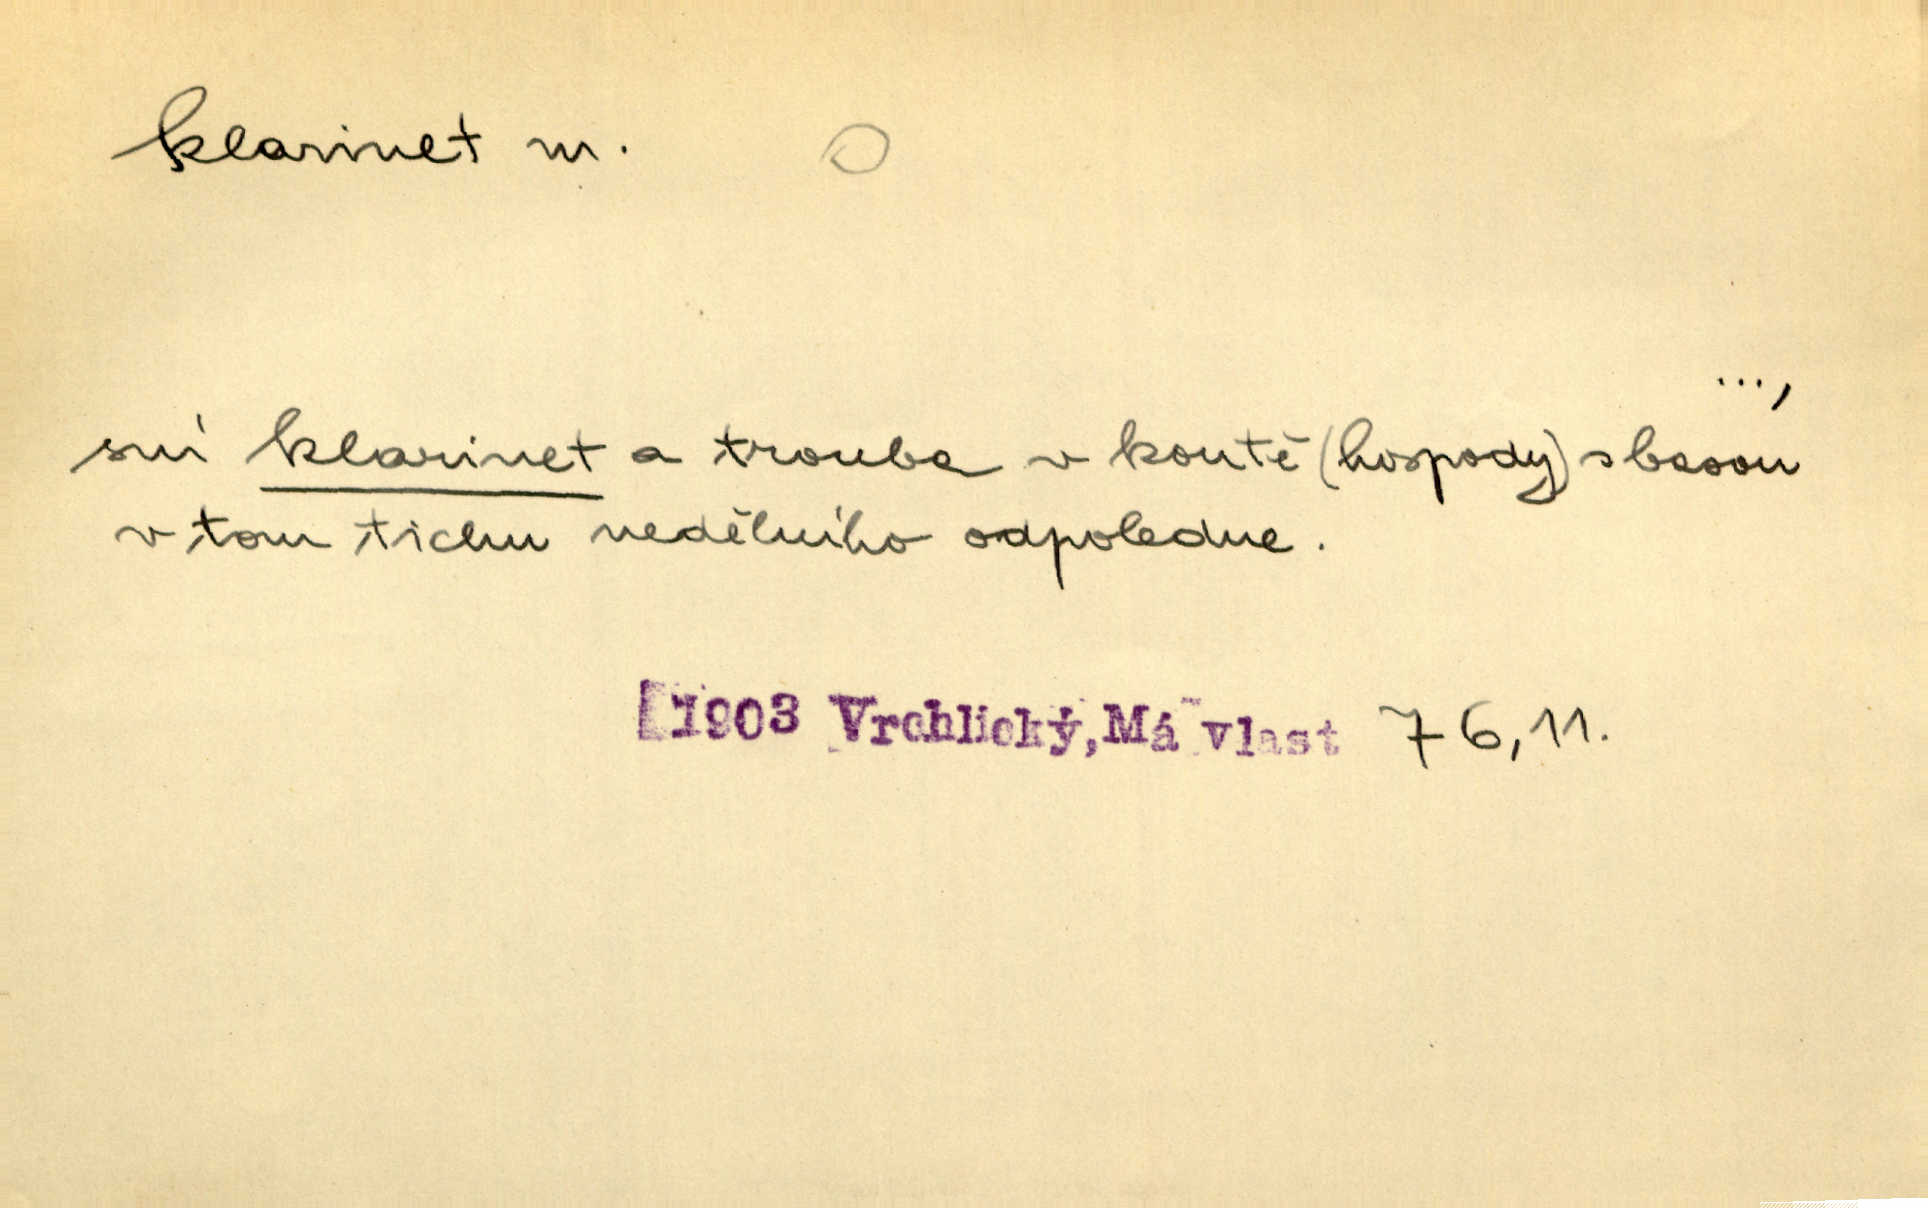 klarinet m.
...,
sní klarinet a trouba v koutě (hospody) s basou
v tom tichu nedělního odpoledne.
[1903 Vrchlický, Má vlast 76,11.